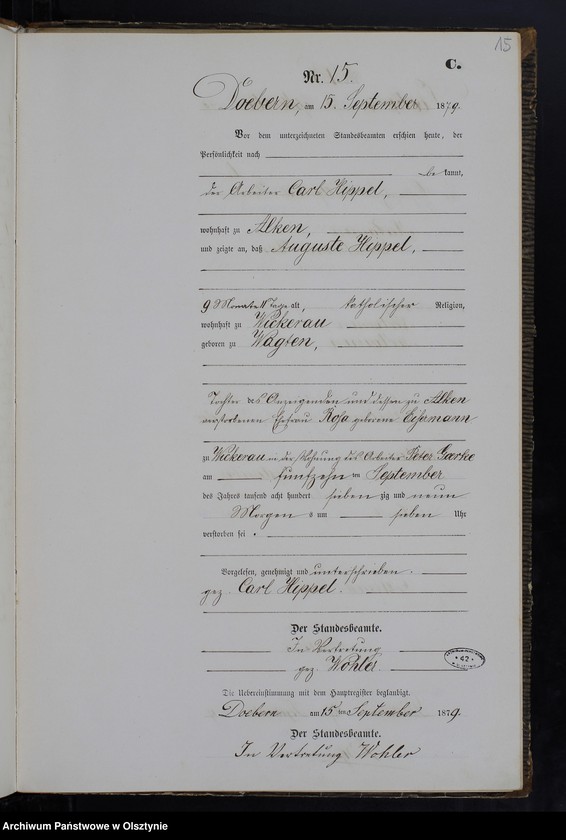 15
C.
Nr. 15.
Doebern, am 15. September 1879.
Vor dem unterzeichneten Standesbeamten erschien heute, der
Persönlichkeit nach
be kannt,
der Arbeiter Carl Hippel,
wohnhaft zu Alken,
und zeigte an, daß Auguste Hippel,
9 Monate 11 Tage alt, katholischer Religion,
wohnhaft zu Wickerau
geboren zu Wagten,
Tochter des Anzeigenden und dessen zu Alken
verstorbenen Ehefrau Rosa geborene Eisermann
zu Wickerau in der Wohnung des Arbeiter Peter Gerke
am fünfzehn ten September
des Jahres tausend acht hundert sieben zig und neun
Morgens um sieben Uhr
verstorben sei.
Vorgelesen, genehmigt und unterschrieben.
gez. Carl Hippel.
Der Standesbeamte.
In Vertretung
gez. Wohler
42
Die Uebereinstimmung mit dem Hauptregister beglaubigt.
Doebern am 15 ten September 1879.
Der Standesbeamte.
In Vertretung Wohler
Archiwum Państwowe w Olsztynie